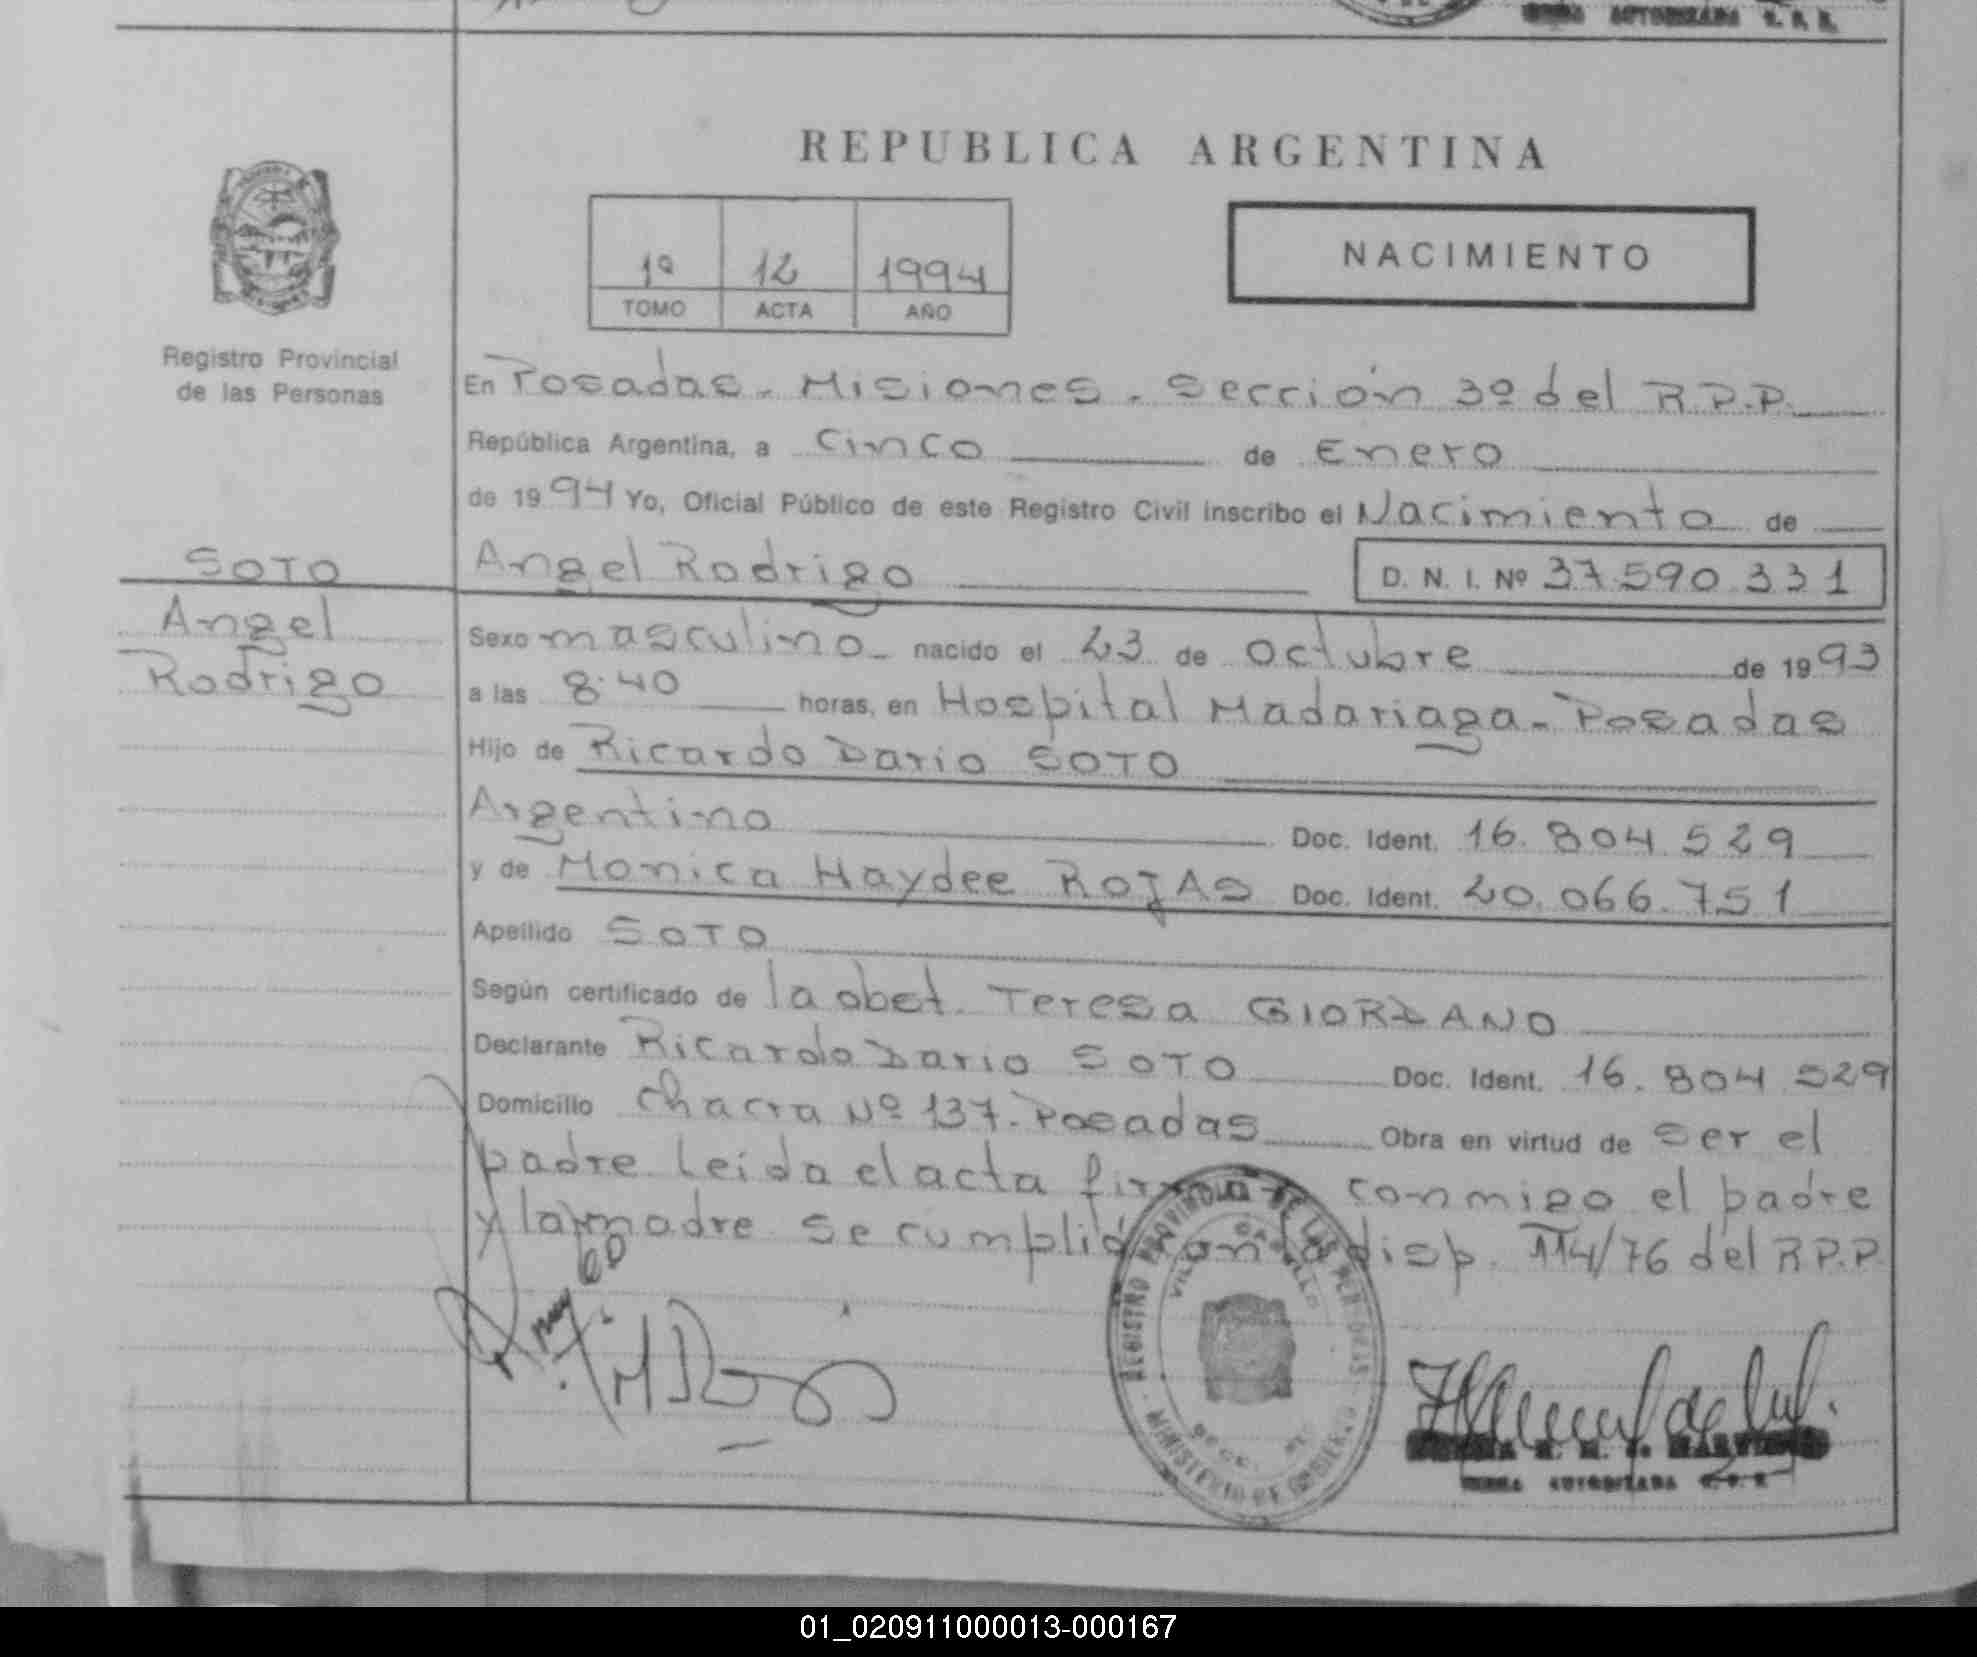 FIRMA AUTORIZADA R. P. P.
REPUBLICA ARGENTINA
1º 12 1994
TOMO ACTA AÑO
NACIMIENTO
Registro Provincial
de las Personas
En Posadas - Misiones - Sección 3º del R.P.P.
República Argentina, a Cinco de Enero
de 1994 Yo, Oficial Público de este Registro Civil inscribo el Nacimiento de
SOTO
Angel Rodrigo
D. N. I. Nº 37.590.331
Angel
Rodrigo
Sexo masculino nacido el 23 de Octubre de 1993
a las 8.40 horas, en Hospital Madariaga - Posadas
Hijo de Ricardo Dario SOTO
Argentino Doc. Ident. 16.804.529
y de Monica Haydee ROJAS Doc. Ident. 20.066.751
Apellido SOTO
Según certificado de la obst. Teresa GIORDANO
Declarante Ricardo Dario SOTO Doc. Ident. 16.804.529
Domicilio Chacra Nº 137 - Posadas Obra en virtud de ser el
padre Leída el acta firman conmigo el padre
y la madre se cumplió con la disp. 114/76 del R.P.P.
REGISTRO PROVINCIAL DE LAS PERSONAS
MINISTERIO DE GOBIERNO
FIRMA AUTORIZADA R. P. P.
01_020911000013-000167